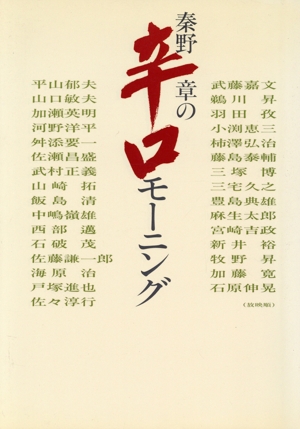 秦野章の
辛口モーニング
武藤嘉文
鵜川昇
羽田孜
小渕恵三
柿澤弘治
藤島泰輔
三塚博
三宅久之
豊島典雄
麻生太郎
宮崎吉政
新井裕
牧野昇
加藤寛
石原伸晃
(放映順)
平山郁夫
山口敏夫
加瀬英明
河野洋平
舛添要一
佐瀬昌盛
武村正義
山崎拓
飯島清
中嶋嶺雄
西部邁
石破茂
佐藤謙一郎
海原治
戸塚進也
佐々淳行